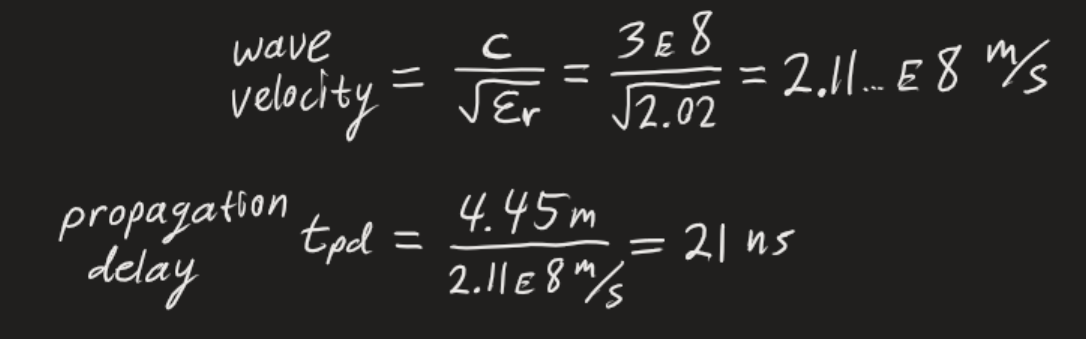 wave velocity = c / √εr = 3E8 / √2.02 = 2.11... E8 m/s
propagation delay tpd = 4.45m / 2.11E8 m/s = 21 ns